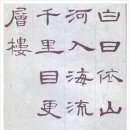 白日依山
河入海流
千里目更
層樓